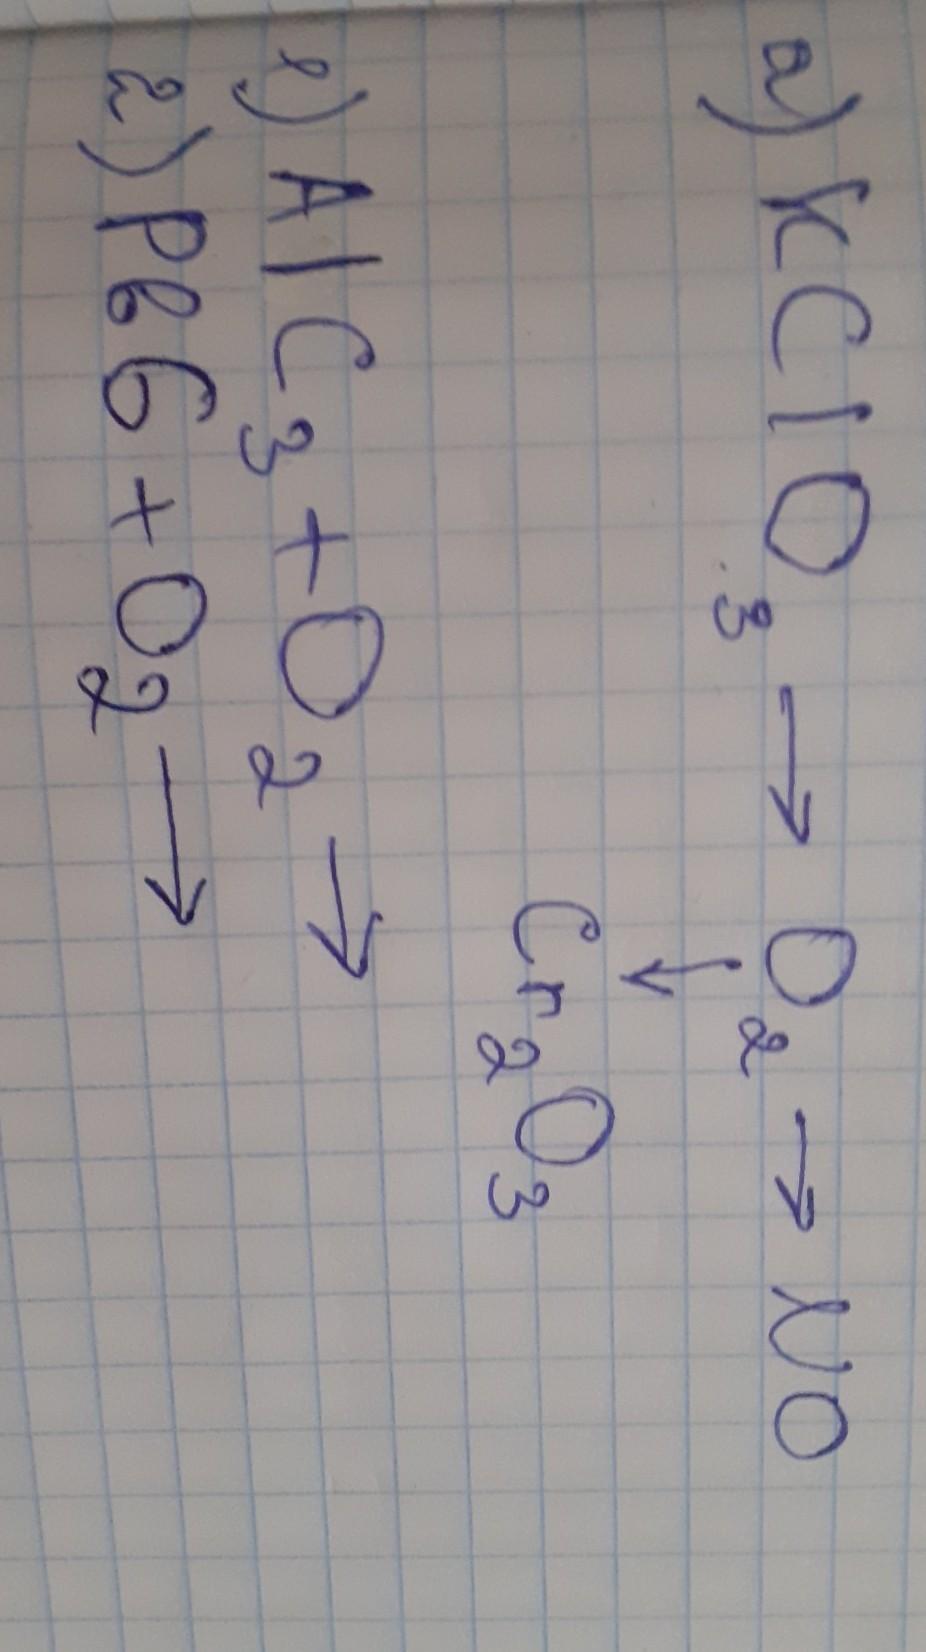 а) KClO3 → O2 → NO
↓
Cr2O3
1) AlC3 + O2 →
2) PbS + O2 →